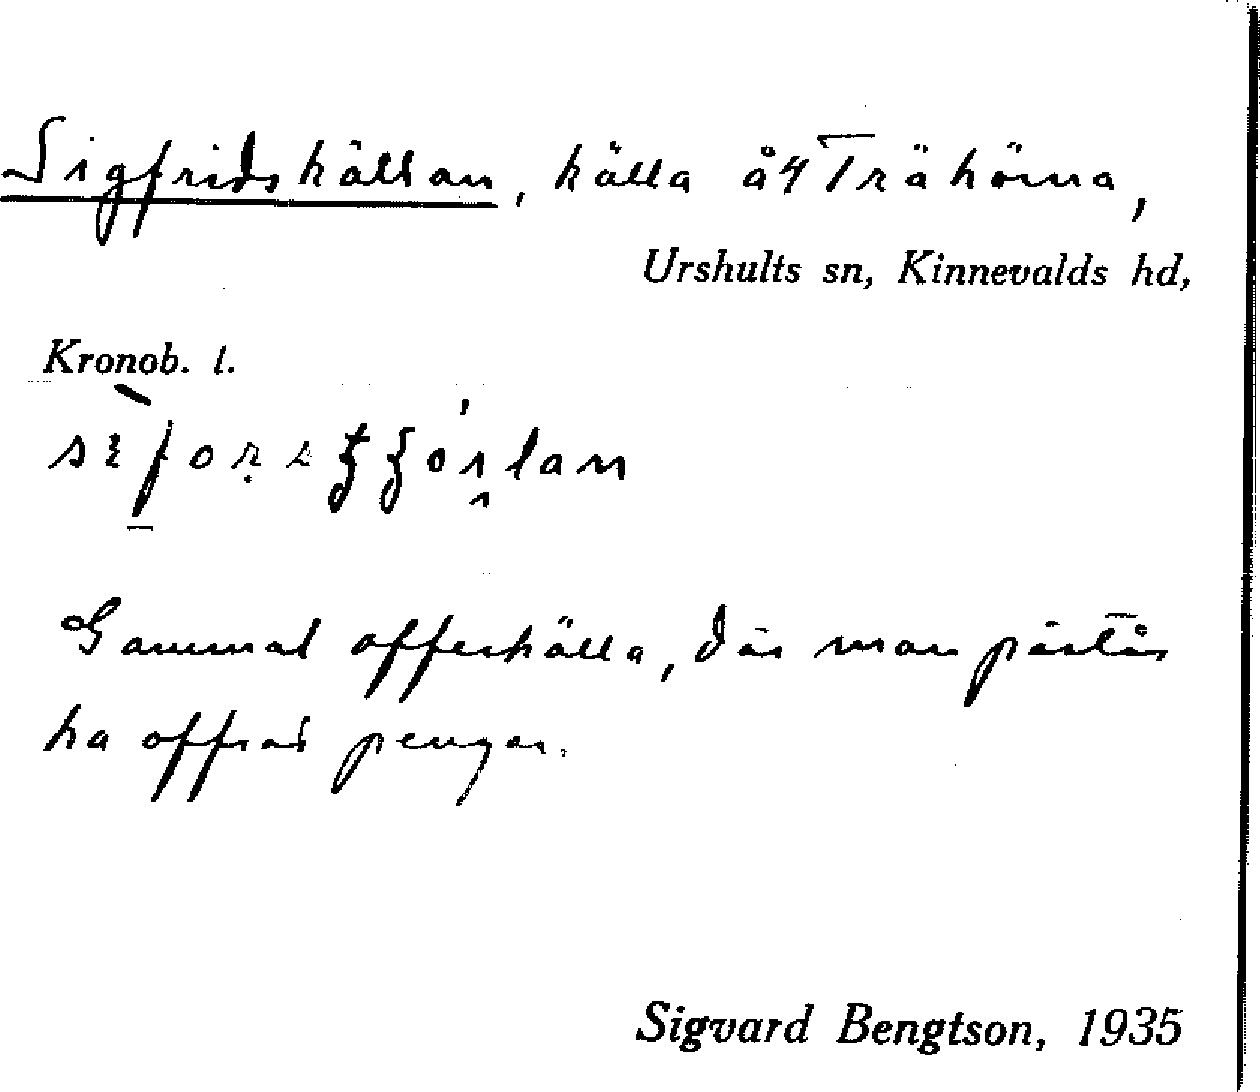 Sigfridskällan, källa å 4 Trähörna,
Urshults sn, Kinnevalds hd,
Kronob. l.
Gammal offerkälla, där man påstås
ha offrat pengar.
Sigvard Bengtson, 1935